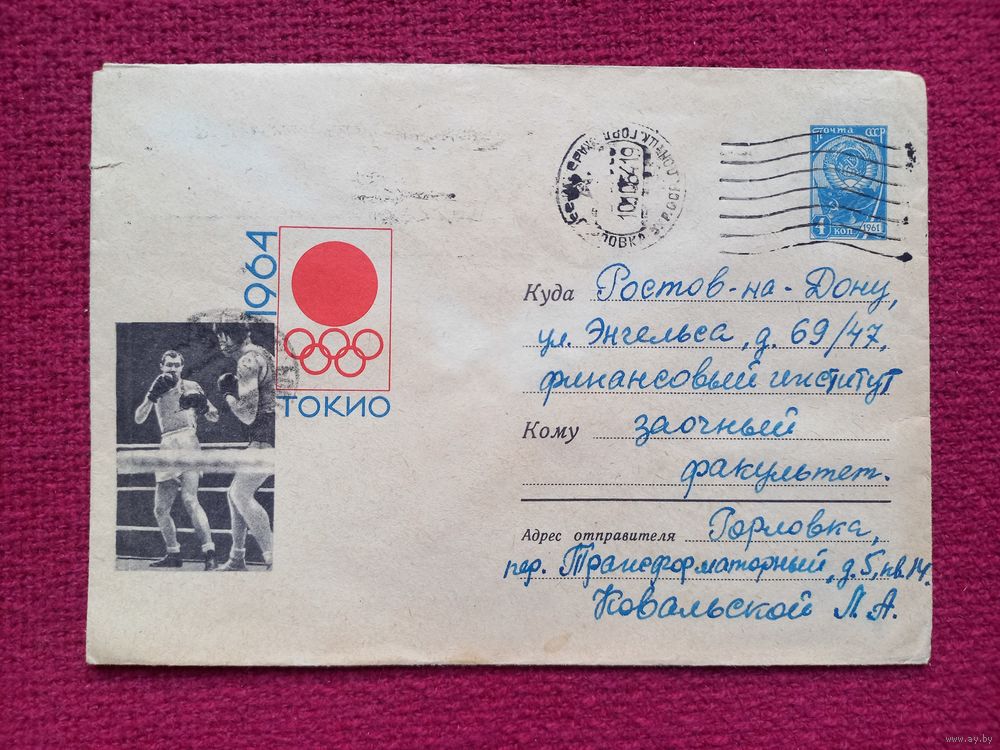 почта СССР
4 коп 1961
1964
ТОКИО
Куда Ростов-на-Дону,
ул. Энгельса, д. 69/47,
финансовый институт
Кому заочный
факультет.
Адрес отправителя Горловка,
пер. Трансформаторный, д. 5, кв. 14.
Ковальской Л. А.
www.ay.by